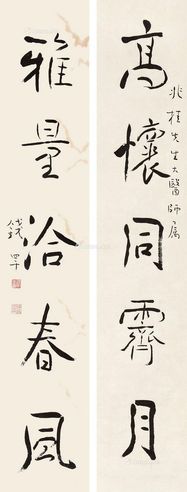 高懷同霽月
兆桂先生大醫師屬
雅量洽春風
錢罕